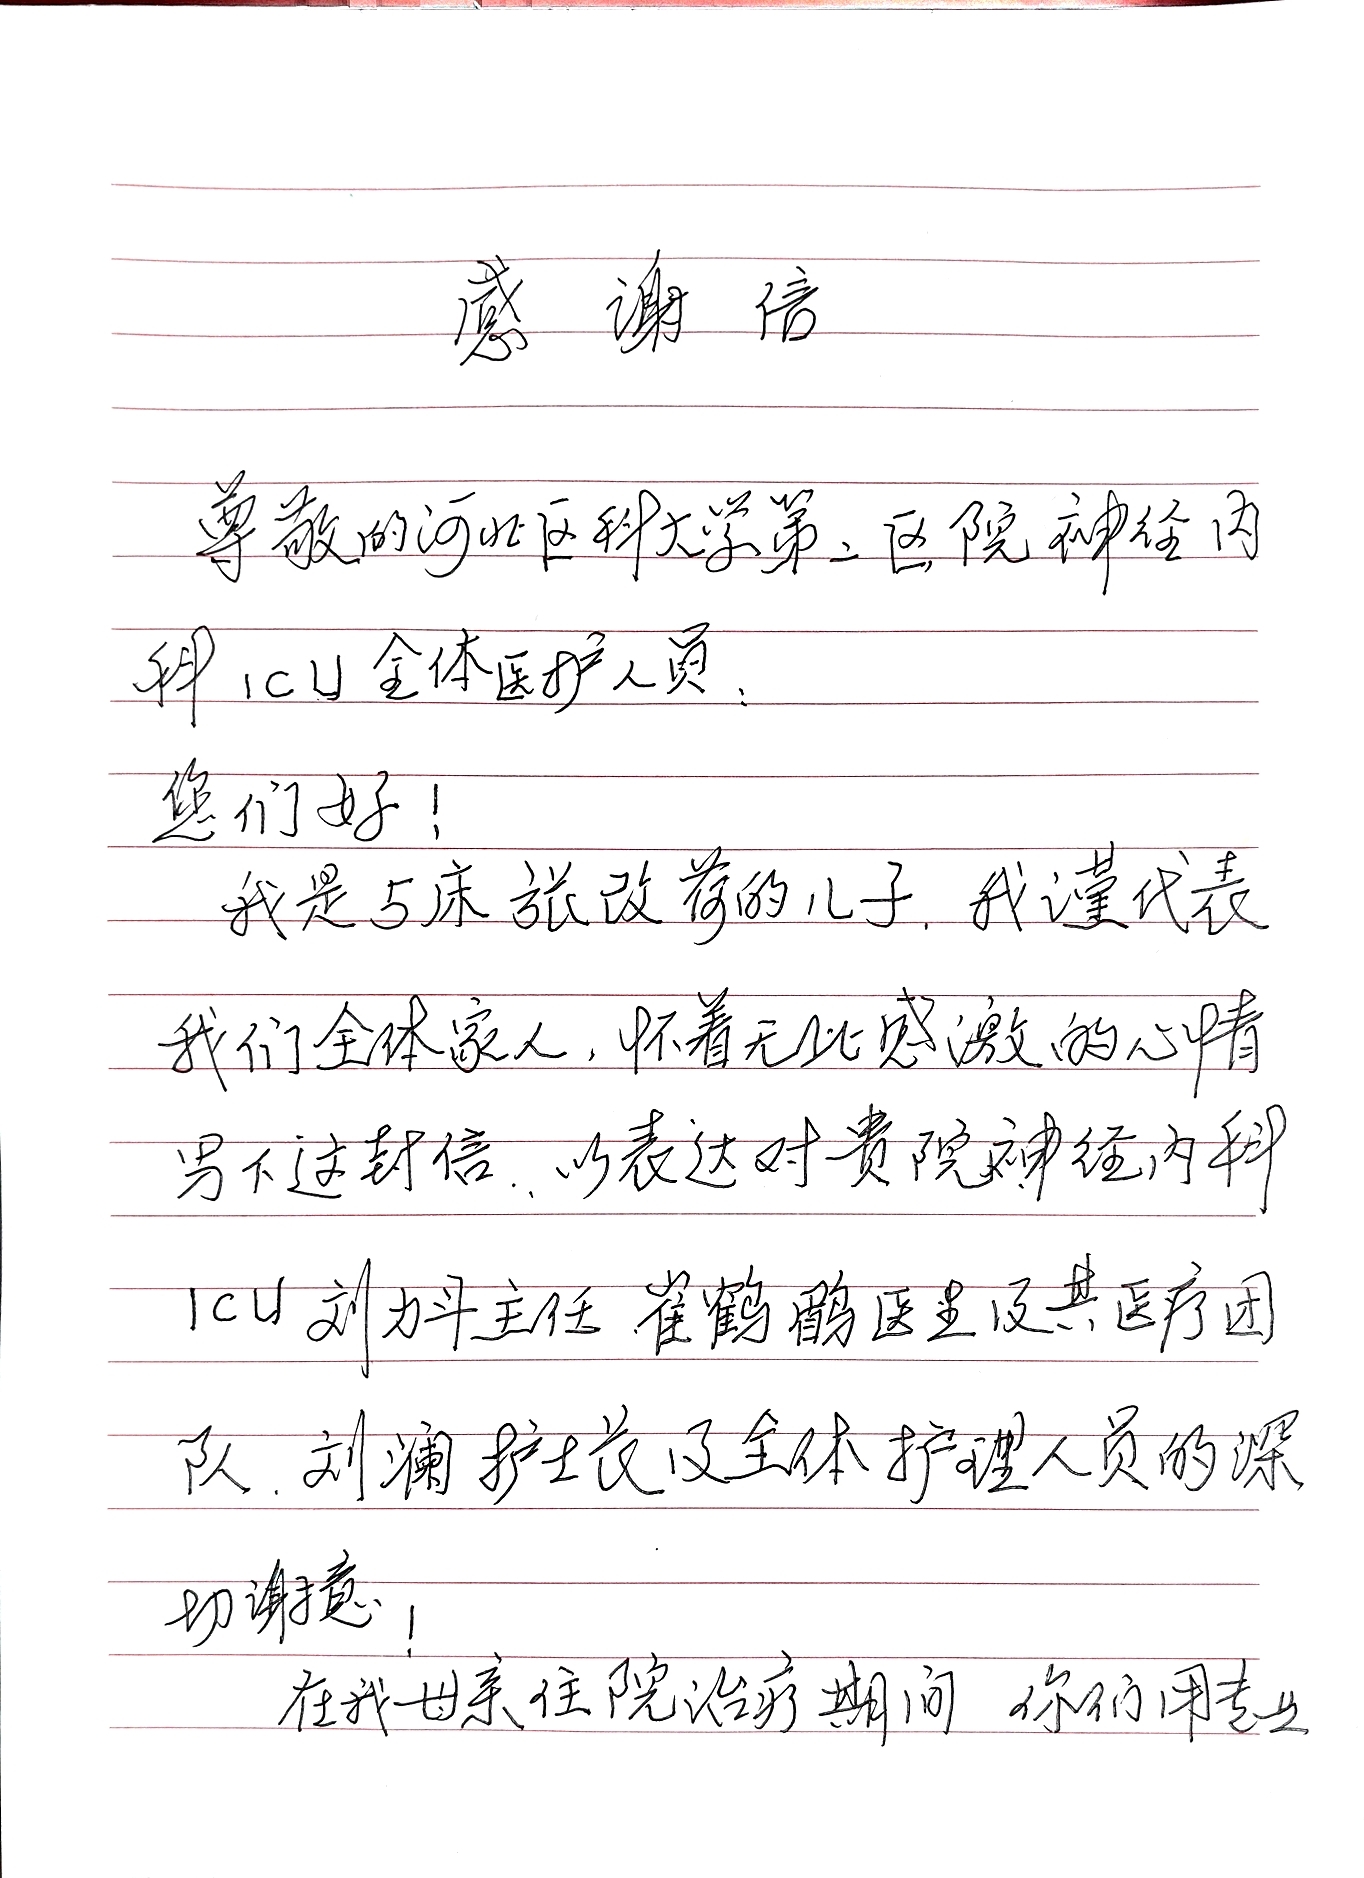 感谢信
尊敬的河北医科大学第二医院神经内
科ICU全体医护人员：
您们好！
我是5床张改荷的儿子，我谨代表
我们全体家人，怀着无比感激的心情
写下这封信，以表达对贵院神经内科
ICU刘力斗主任 崔鹤鹛医生及其医疗团
队、刘澜护士长及全体护理人员的深
切谢意！
在我母亲住院治疗期间 你们用专业